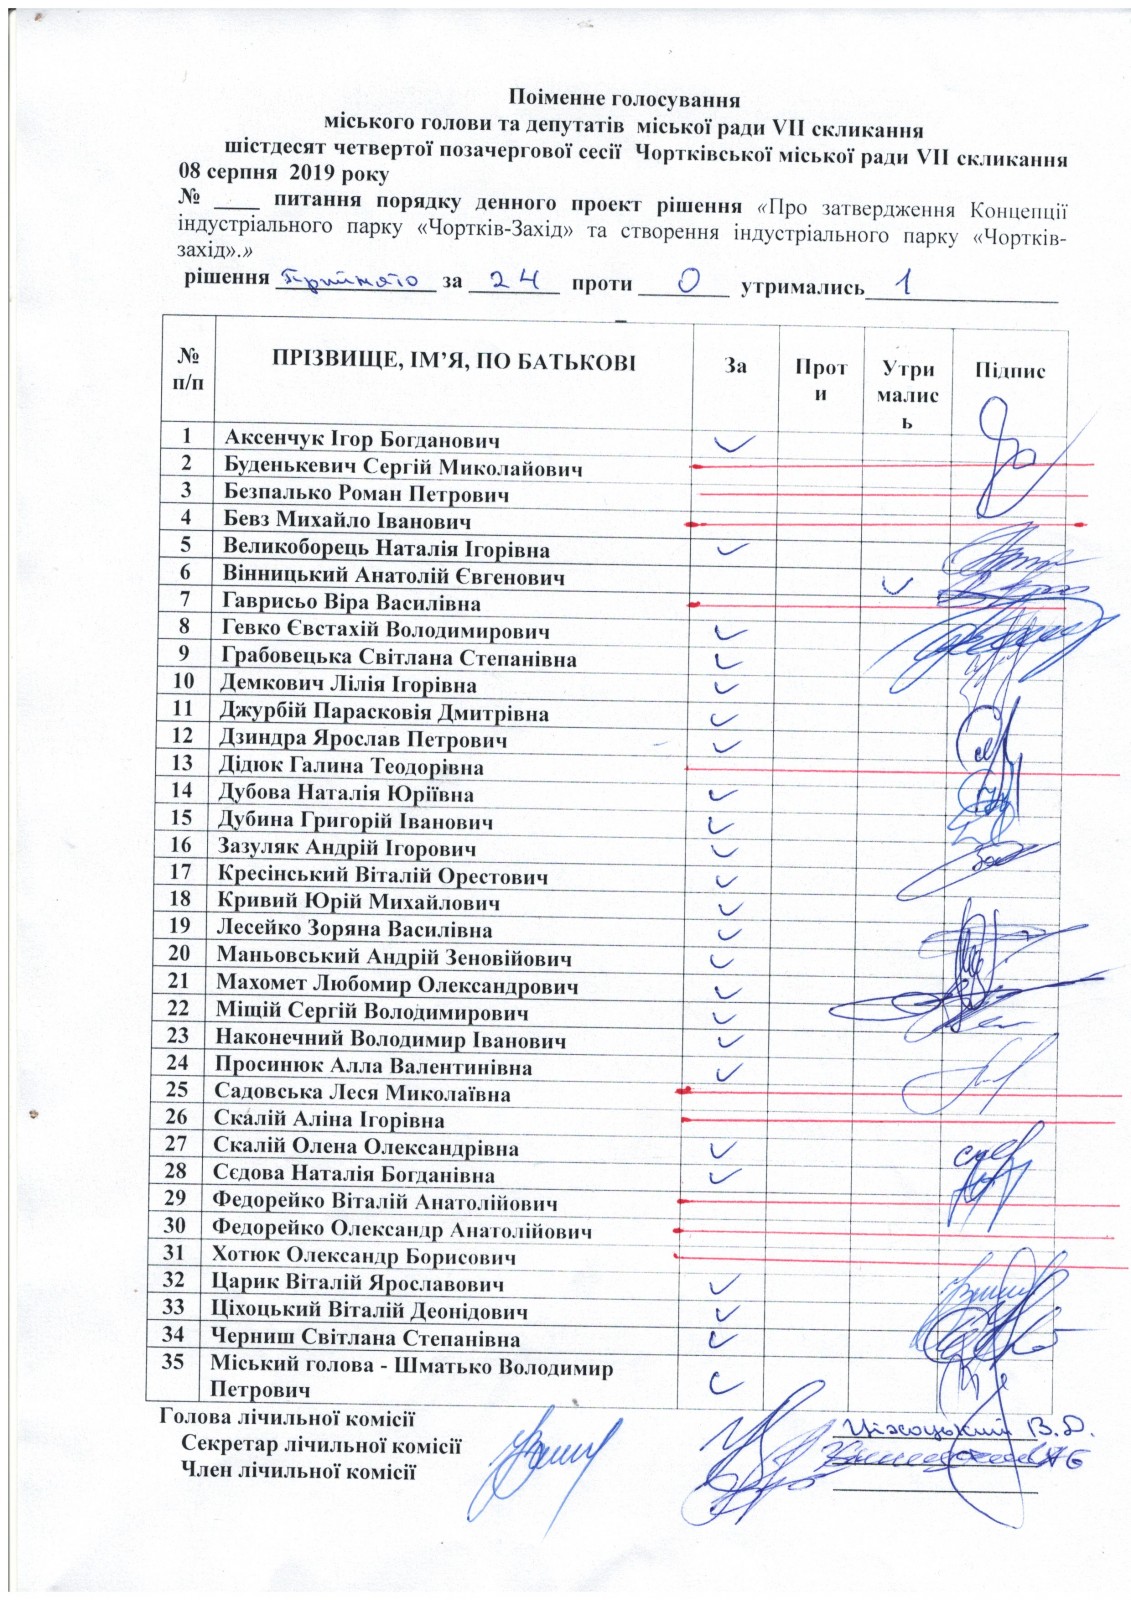 Поіменне голосування
міського голови та депутатів міської ради VII скликання
шістдесят четвертої позачергової сесії Чортківської міської ради VII скликання
08 серпня 2019 року
№ ____ питання порядку денного проект рішення «Про затвердження Концепції
індустріального парку «Чортків-Захід» та створення індустріального парку «Чортків-
захід».»
рішення прийнято за 24 проти 0 утримались 1
№ п/п ПРІЗВИЩЕ, ІМ’Я, ПО БАТЬКОВІ За Проти Утримались Підпис
1 Аксенчук Ігор Богданович
2 Буденькевич Сергій Миколайович
3 Безпалько Роман Петрович
4 Бевз Михайло Іванович
5 Великоборець Наталія Ігорівна
6 Вінницький Анатолій Євгенович
7 Гаврисьо Віра Василівна
8 Гевко Євстахій Володимирович
9 Грабовецька Світлана Степанівна
10 Демкович Лілія Ігорівна
11 Джурбій Парасковія Дмитрівна
12 Дзиндра Ярослав Петрович
13 Дідюк Галина Теодорівна
14 Дубова Наталія Юріївна
15 Дубина Григорій Іванович
16 Зазуляк Андрій Ігорович
17 Кресінський Віталій Орестович
18 Кривий Юрій Михайлович
19 Лесейко Зоряна Василівна
20 Маньовський Андрій Зеновійович
21 Махомет Любомир Олександрович
22 Міщій Сергій Володимирович
23 Наконечний Володимир Іванович
24 Просинюк Алла Валентинівна
25 Садовська Леся Миколаївна
26 Скалій Аліна Ігорівна
27 Скалій Олена Олександрівна
28 Сєдова Наталія Богданівна
29 Федорейко Віталій Анатолійович
30 Федорейко Олександр Анатолійович
31 Хотюк Олександр Борисович
32 Царик Віталій Ярославович
33 Ціхоцький Віталій Деонідович
34 Черниш Світлана Степанівна
35 Міський голова - Шматько Володимир
Петрович
Голова лічильної комісії Ціхоцький В.Д.
Секретар лічильної комісії
Член лічильної комісії